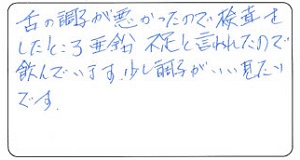 舌の調子が悪かったので検査を
したところ亜鉛不足と言われたので
飲んでいます.少し調子がいい見たい
です.